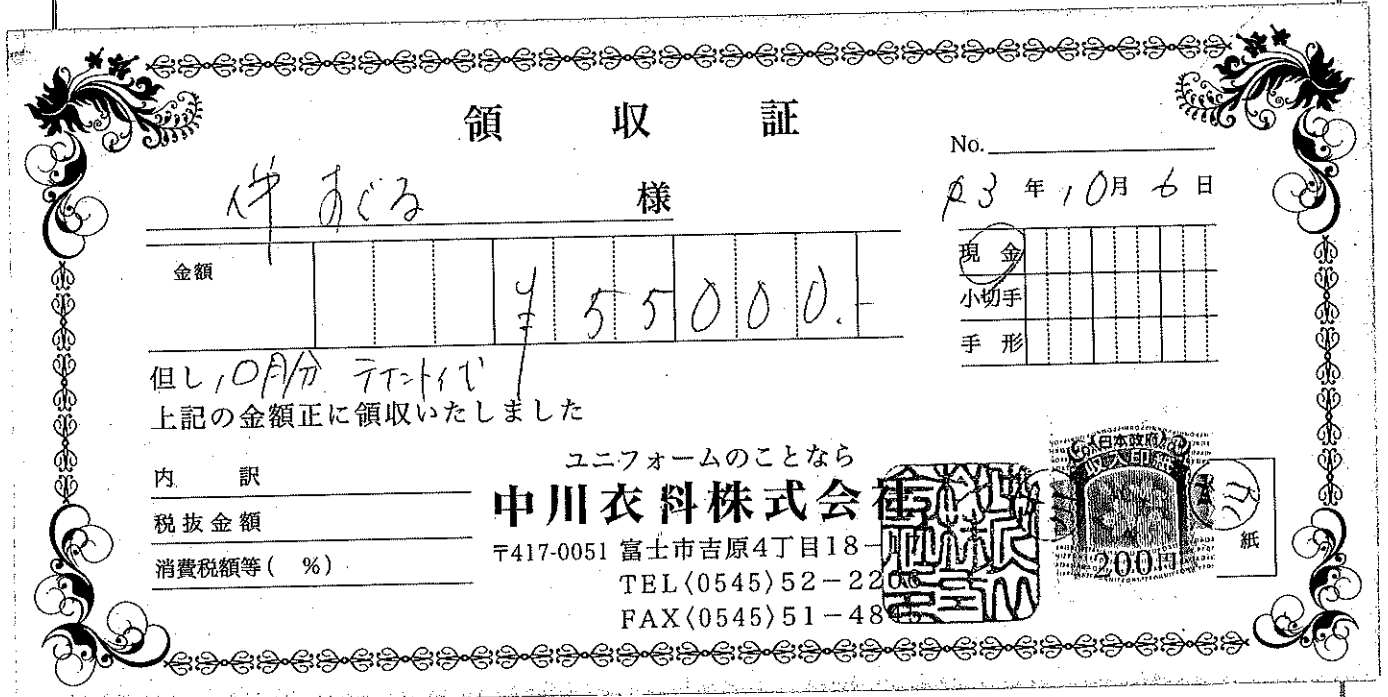 領 収 証
No.
伴 すぐる 様
R3 年 10月 6日
金額 ¥55000.-
現 金
小切手
手 形
但し 10月分 テナント代
上記の金額正に領収いたしました
内 訳
税抜金額
消費税額等( %)
ユニフォームのことなら
中川衣料株式会社
〒417-0051 富士市吉原4丁目18-
TEL〈0545〉52-220
FAX〈0545〉51-484
日本政府
収入印紙
200円
紙